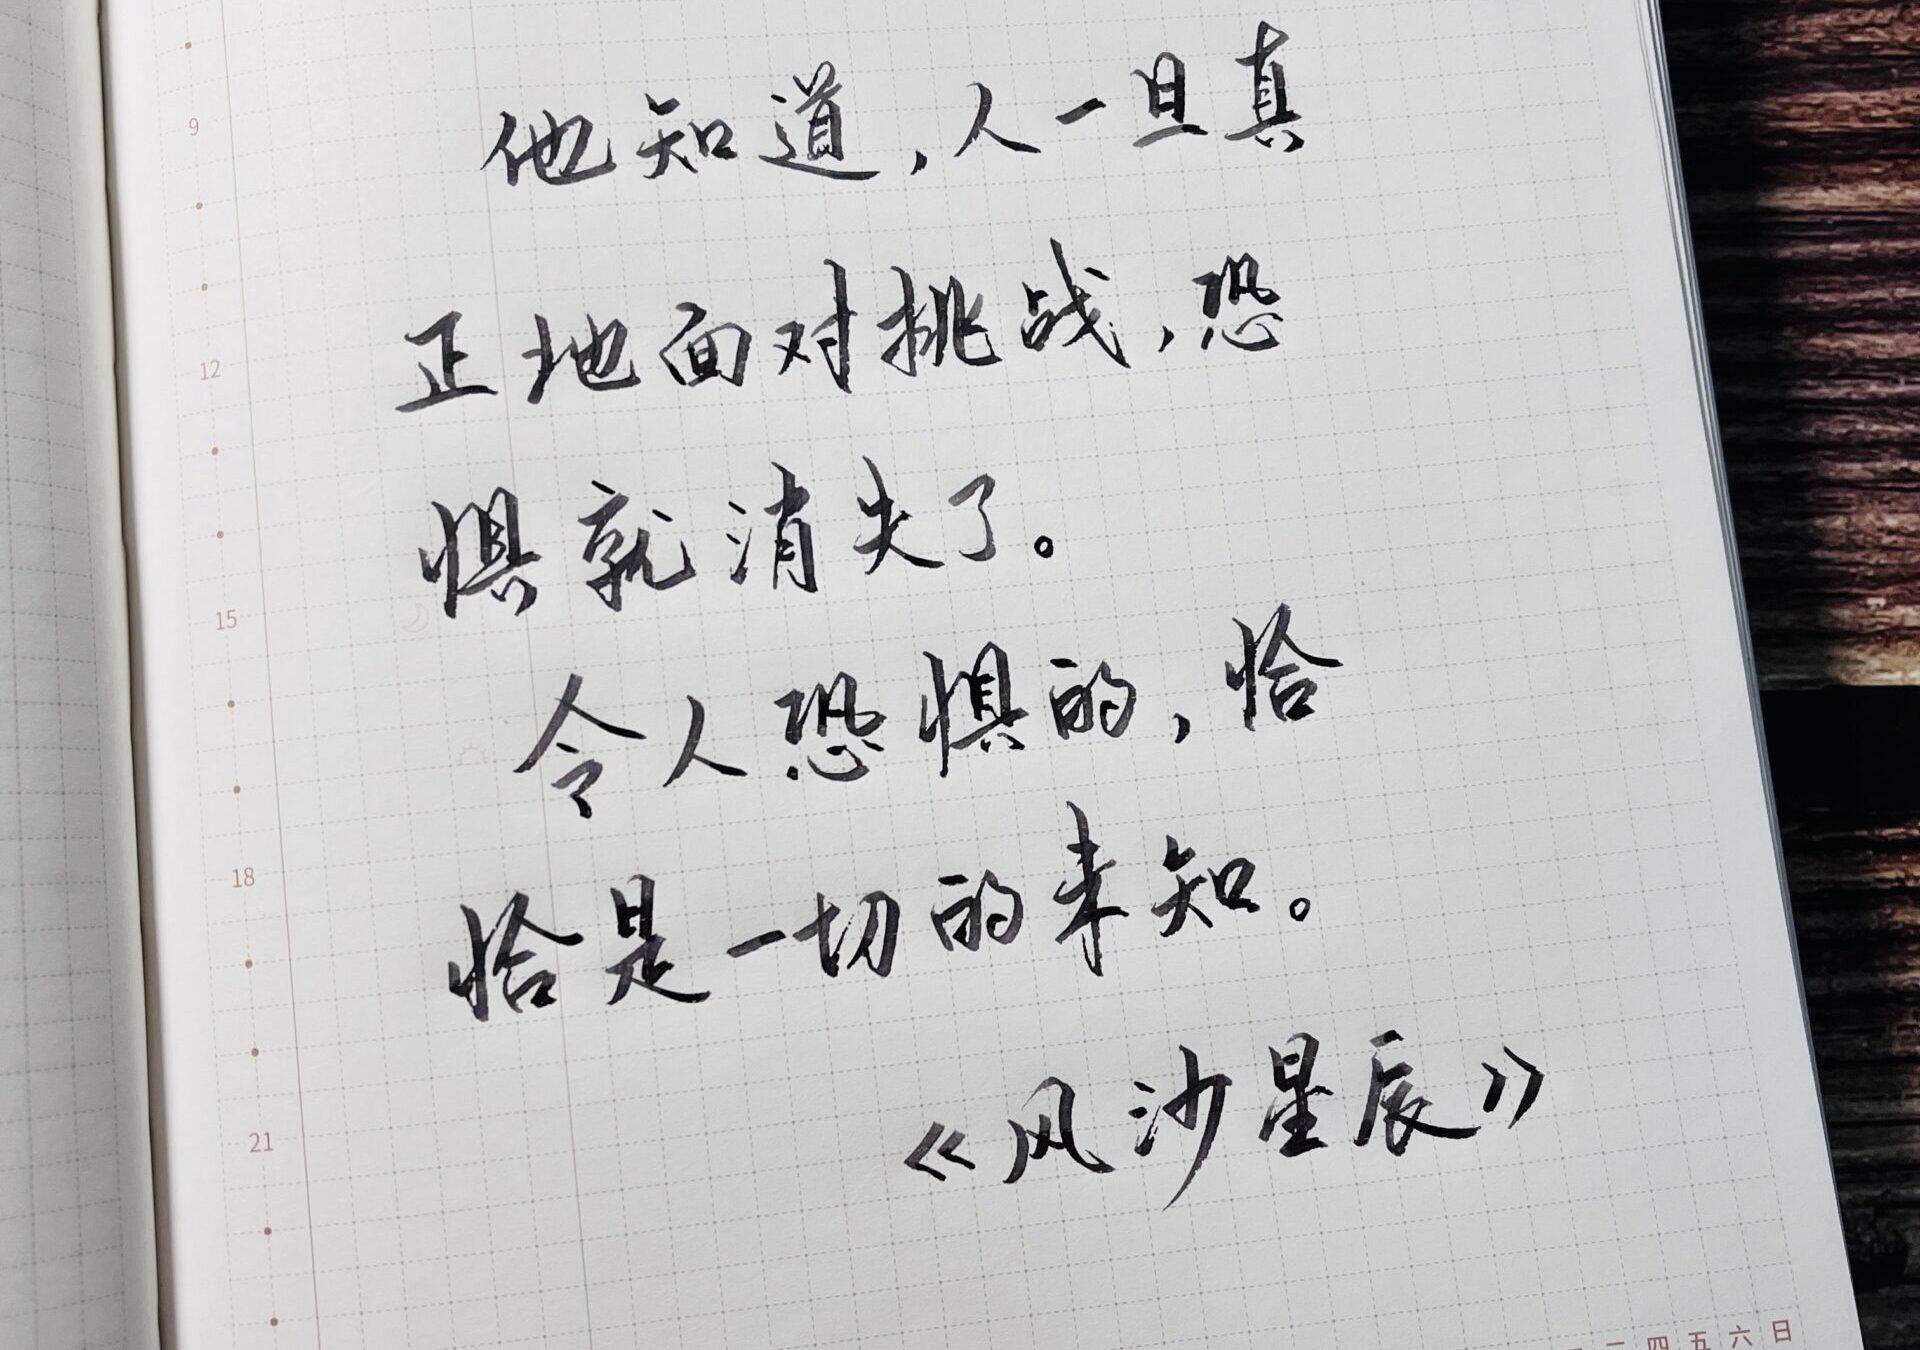 9
他知道，人一旦真
12
正地面对挑战，恐
惧就消失了。
15
令人恐惧的，恰
18
恰是一切的未知。
21
《风沙星辰》
四 五 六 日